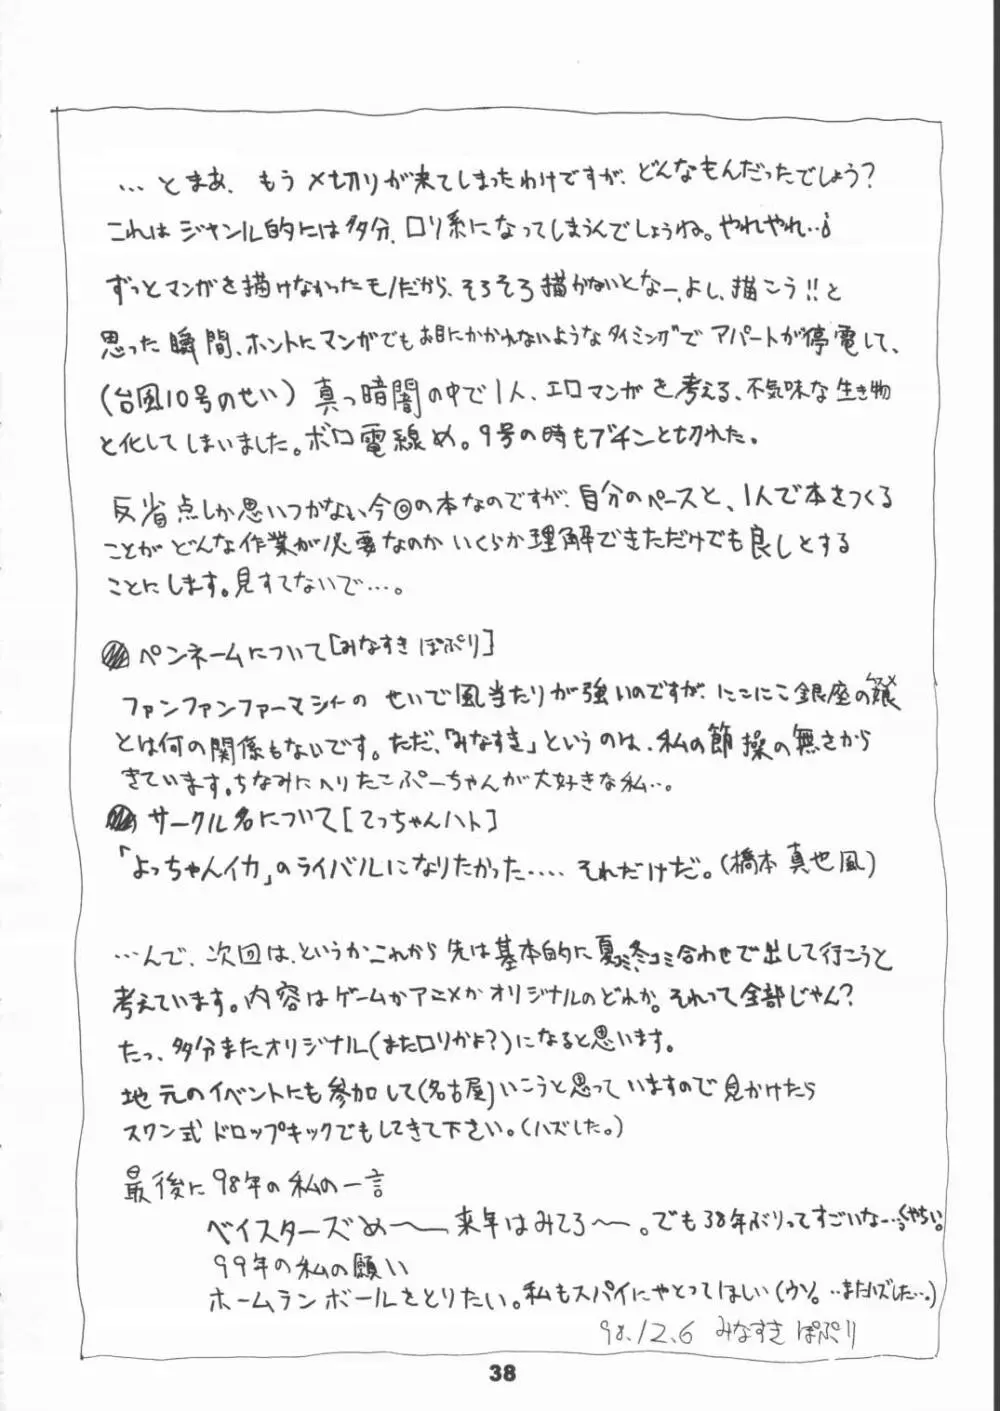 …とまあ、もう〆切りが来てしまったわけですが、どんなもんだったでしょう?
これはジャンル的には多分、ロリ系になってしまうんでしょうね。やれやれ‥♪
ずっとマンガを描けなかったモノだから、そろそろ描かないとなー、よし、描こう!!と
思った瞬間、ホントにマンガでもお目にかかれないようなタイミングでアパートが停電して、
(台風10号のせい)真っ暗闇の中で1人、エロマンガを考える、不気味な生き物
と化してしまいました。ボロ電線め。9号の時もブチンと切れた。
反省点しか思いつかない今回の本なのですが、自分のペースと、1人で本をつくる
ことがどんな作業が必要なのかいくらか理解できただけでも良しとする
ことにします。見すてないで…。
ペンネームについて[みなすき ぽぷり]
ファンファンファーマシィーのせいで風当たりが強いのですが、にこにこ銀座の娘
ムスメ
とは何の関係もないです。ただ、「みなすき」というのは、私の節操の無さから
きています。ちなみにへりたこぷーちゃんが大好きな私…。
サークル名について[てっちゃんハト]
「よっちゃんイカ」のライバルになりたかった‥‥それだけだ。(橋本真也風)
…んで、次回は、というかこれから先は基本的に夏コミ、冬コミ合わせで出して行こうと
考えています。内容はゲームかアニメかオリジナルのどれか。それって全部じゃん?
たっ、多分またオリジナル(またロリかよ?)になると思います。
地元のイベントにも参加して(名古屋)いこうと思っていますので見かけたら
スワン式ドロップキックでもしてきて下さい。(ハズした。)
最後に98年の私の一言
ベイスターズめ〜 来年はみてろ〜。でも38年ぶりってすごいなー…くやちい。
99年の私の願い
ホームランボールをとりたい。私もスパイにやとってほしい(ウソ。…またハズした…。)
98.12.6 みなすき ぽぷり
38